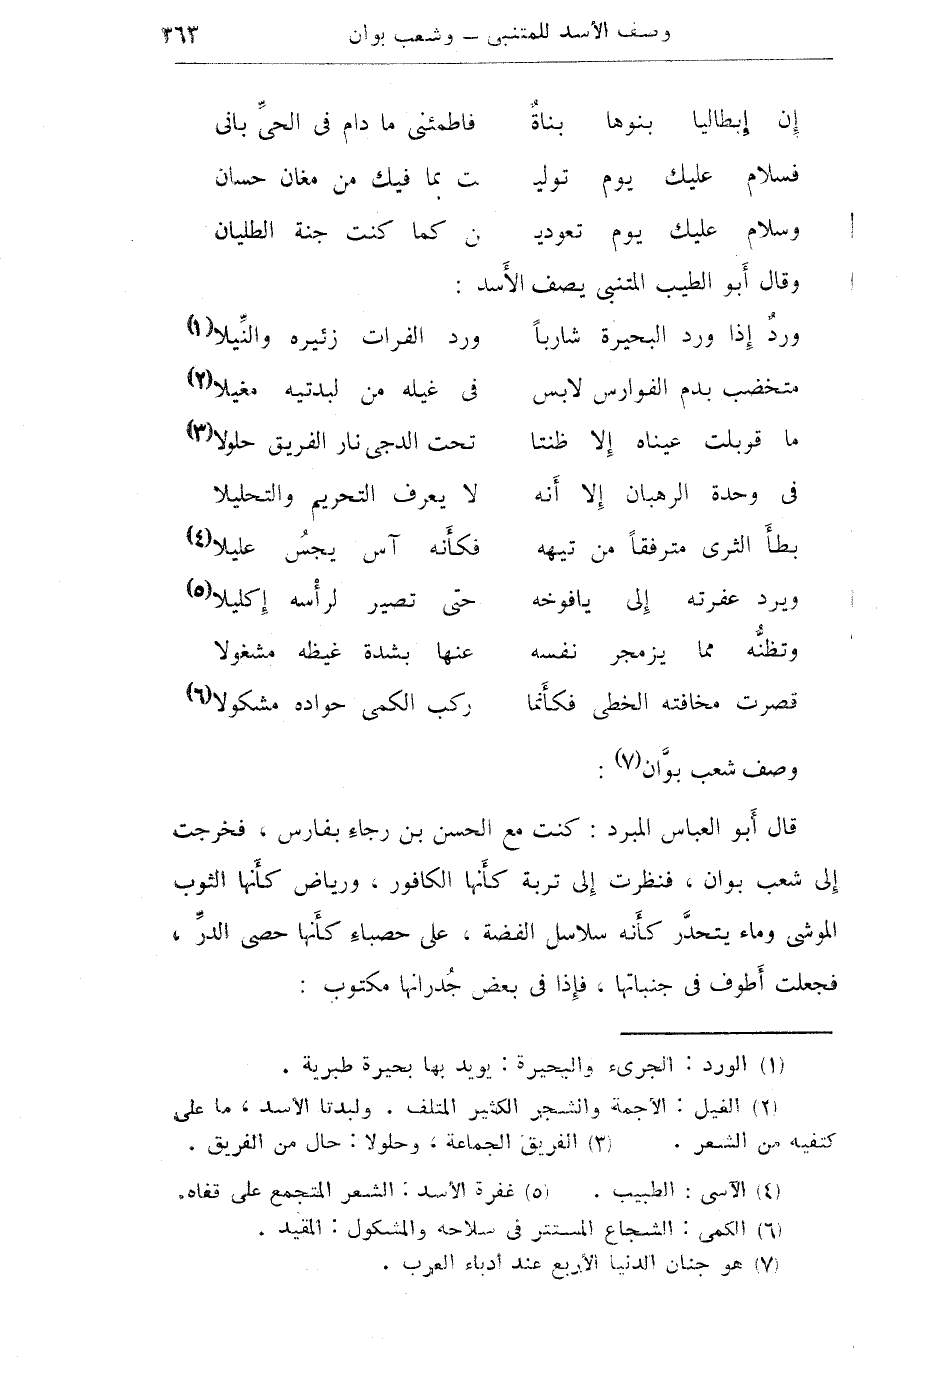 وصف الأسد للمتنبى – وشعب بوان ٣٦٣
إن إيطاليا بنوها بناةٌ فاطمئنى ما دام فى الحىِّ بانى
فسلام عليك يوم توليـ ـت بما فيك من مغان حسان
وسلام عليك يوم تعوديـ ـن كما كنت جنة الطليان
وقال أَبو الطيب المتنبى يصف الأَسد :
وردٌ إِذا ورد البحيرة شارباً ورد الفرات زئيره والنِّيلا(١)
متخضب بدم الفوارس لابس فى غيله من لبدتيه مغيلا(٢)
ما قوبلت عيناه إِلا ظنتا تحت الدجى نار الفريق حلولا(٣)
فى وحدة الرهبان إِلا أَنه لا يعرف التحريم والتحليلا
بطأَ الثرى مترفقاً من تيهه فكأَنه آس يجسُ عليلا(٤)
ويرد عفرته إِلى يافوخه حتى تصير لرأْسه إِكليلا(٥)
وتظنُّه مما يزمجر نفسه عنها بشدة غيظه مشغولا
قصرت مخافته الخطى فكأَنما ركب الكمى حواده مشكولا(٦)
وصف شعب بوَّان(٧) :
قال أَبو العباس المبرد : كنت مع الحسن بن رجاء بفارس ، فخرجت
إِلى شعب بوان ، فنظرت إِلى تربة كأَنها الكافور ، ورياض كأَنها الثوب
الموشى وماء يتحدَّر كأَنه سلاسل الفضة ، على حصباء كأَنها حصى الدرِّ ،
فجعلت أَطوف فى جنباتها ، فإِذا فى بعض جُدرانها مكتوب :
(١) الورد : الجرىء والبحيرة : يويد بها بحيرة طبرية .
(٢) الغيل : الأجمة والشجر الكثير الملتف . ولبدتا الأسد ، ما على
كتفيه من الشعر . (٣) الفريق الجماعة ، وحلولا : حال من الفريق .
(٤) الآسى : الطبيب . (٥) غفرة الأسد : الشعر المتجمع على قفاه.
(٦) الكمى : الشجاع المستتر فى سلاحه والمشكول : المقيد .
(٧) هو جنان الدنيا الأربع عند أدباء العرب .